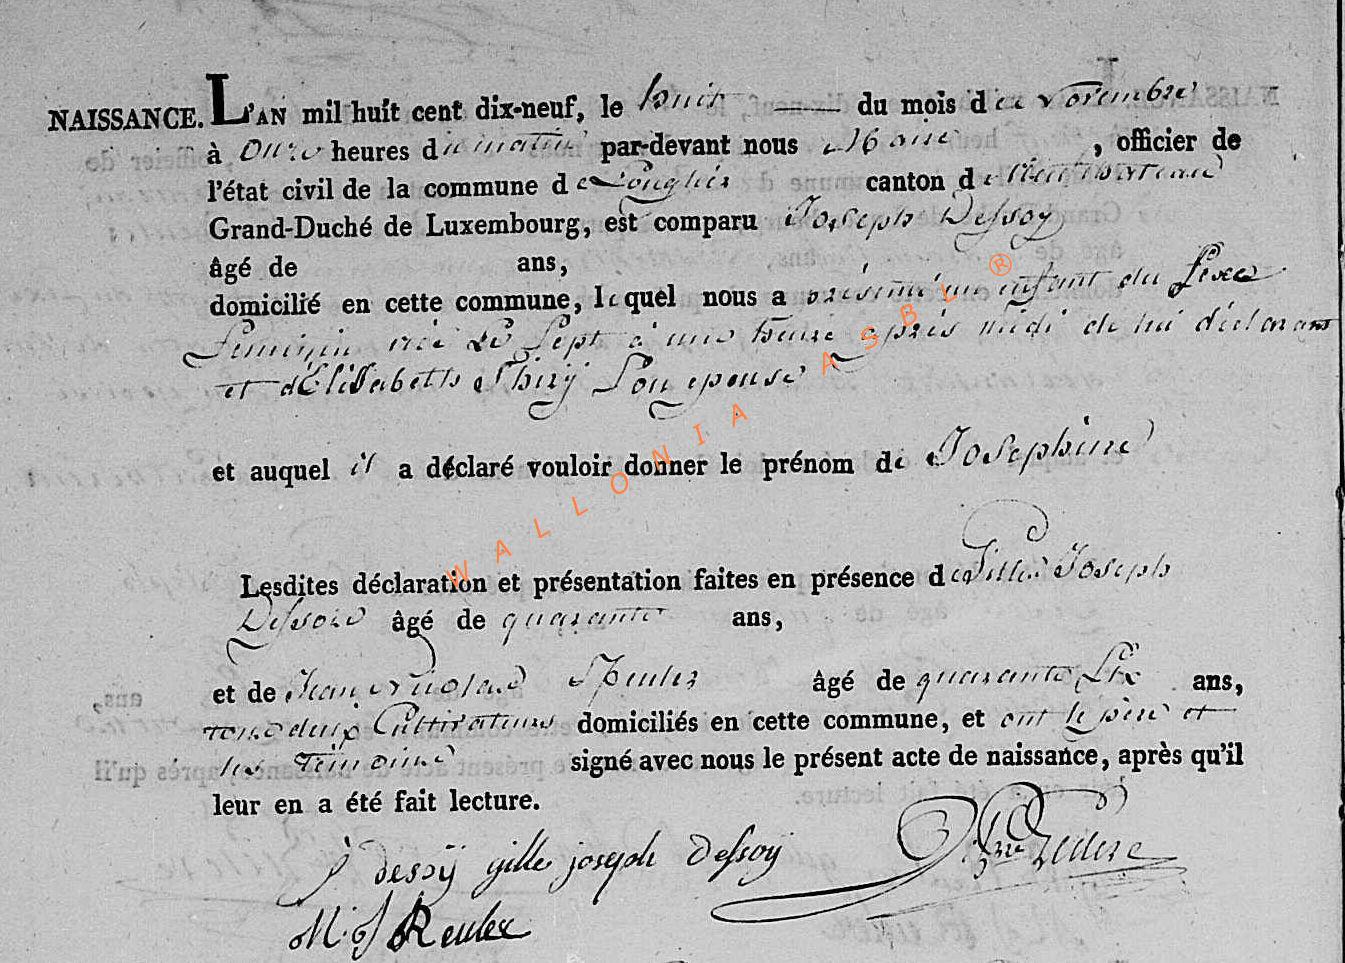 NAISSANCE. L'AN mil huit cent dix-neuf, le huit du mois de Novembre
à Onze heures du matin par-devant nous , officier de
l'état civil de la commune de Longlier canton de Neufchateau
Grand-Duché de Luxembourg, est comparu Joseph Dessoy
âgé de ans,
domicilié en cette commune, lequel nous a présenté un enfant du Sexe
Feminin née Le Sept à une heure après midi de lui déclarant
et d'Elisabeth Thiry Son epouse
et auquel il a déclaré vouloir donner le prénom de Josephine
Lesdites déclaration et présentation faites en présence de Gille Joseph
Dessoie âgé de quarante ans,
et de Jean âgé de quarante Six ans,
tous deux Cultivateurs domiciliés en cette commune, et ont le père et
les Témoins signé avec nous le présent acte de naissance, après qu'il
leur en a été fait lecture.
j dessoÿ gille joseph Dessoÿ
WALLONIA ASBL ®